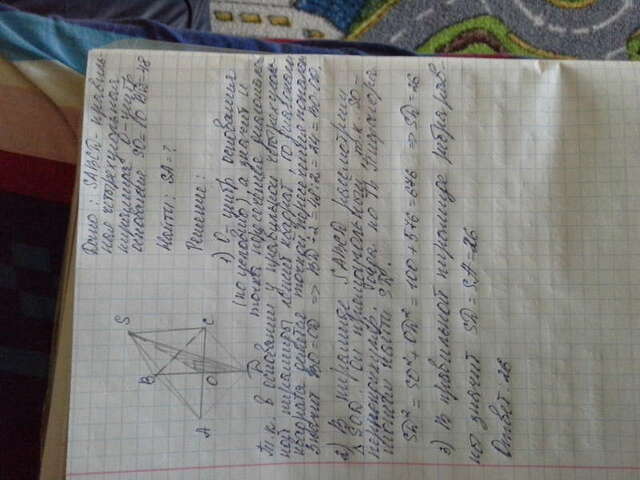 Дано: SABCD - правиль-
ная четырехугольная
пирамида O - центр
основания SO=10 BD=48
Найти: SA=?
Решение:
1) O центр основания
(по условию), а значит и
точка пересечения диагоналей
т.к. в основании у правильной четырехуголь-
ной пирамиды лежит квадрат, то диагонали
квадрата делятся точкой пересечения пополам
значит BO=OD => BD:2=48:2=24=BO=OD
2) В пирамиде SABCD рассмотрим
△SOD он прямоугольный т.к. SO -
перпендикуляр. Тогда по т. Пифагора
найти SD.
SD²=SO²+OD²=100+576=676 => SD=26
3) В правильной пирамиде ребра рав-
ны значит SD=SA=26
Ответ 26
S
B
C
O
A
D